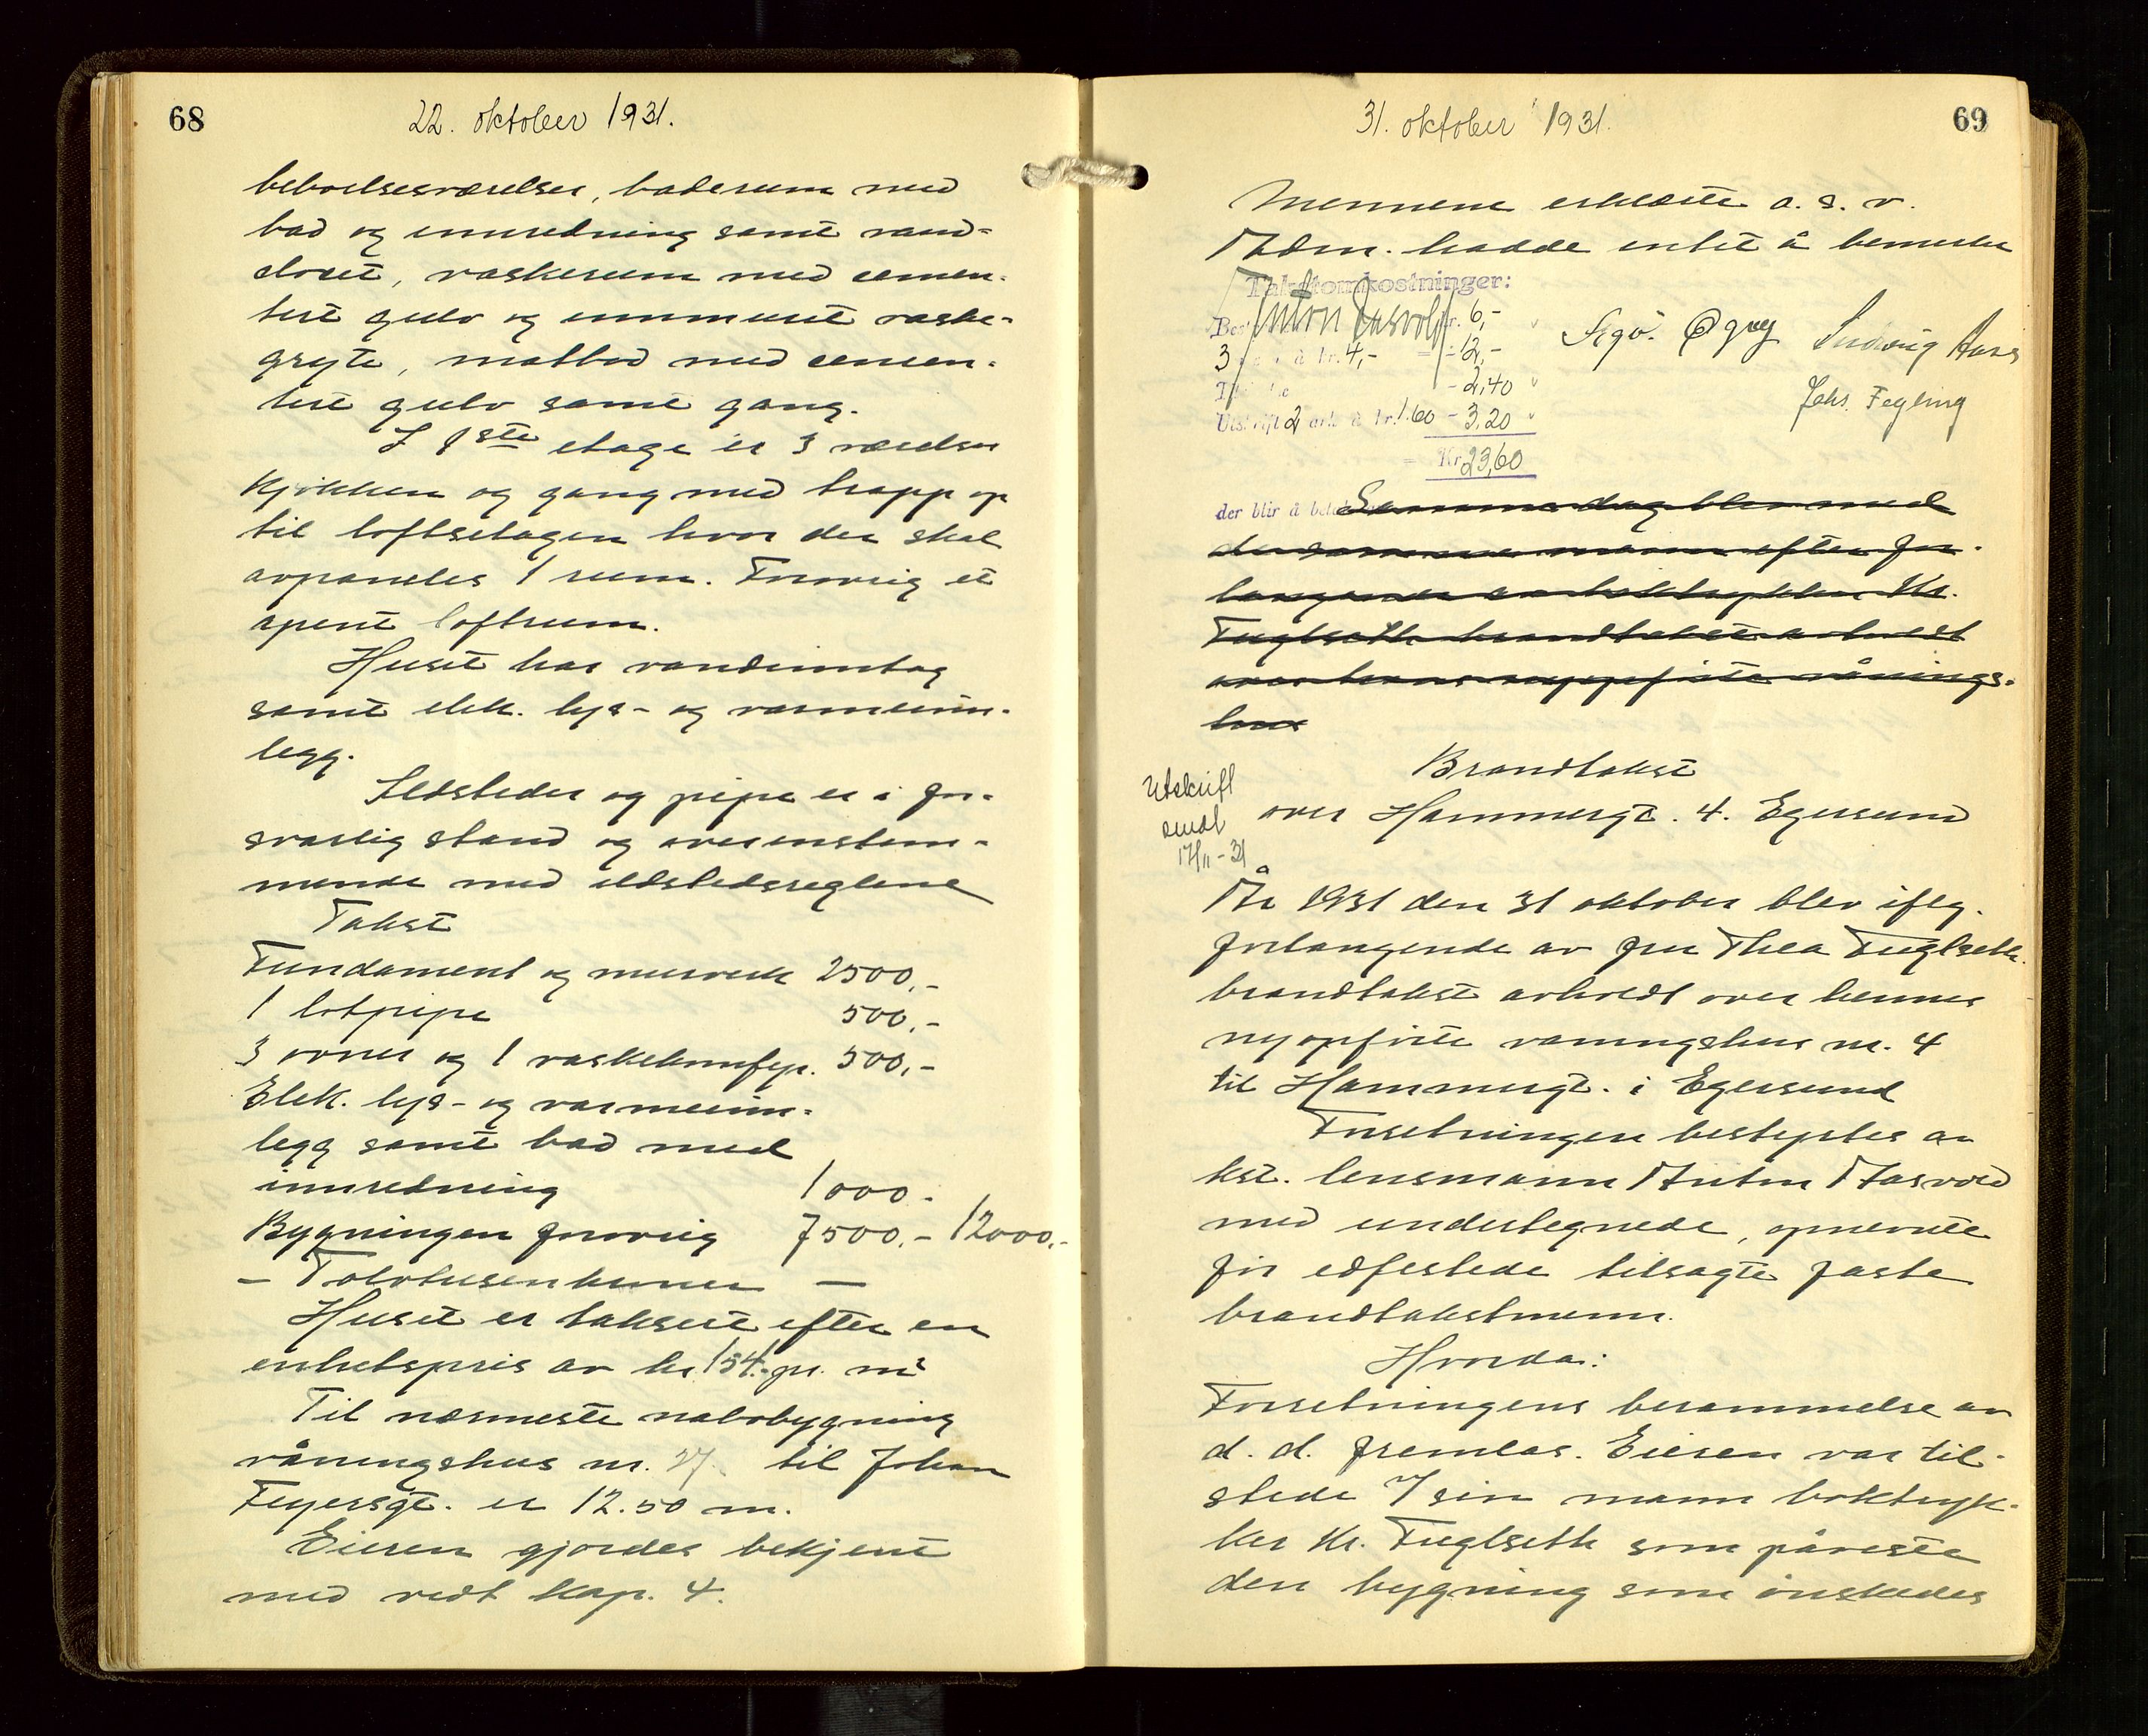 68
22. oktober 1931.
beboelsesværelser, baderum med
bad og innredning samt vand-
closet, vaskerum med cemen-
tert gulv og innmuret vaske-
gryte, matbod med cemen-
tert gulv samt gang.
I 1ste etage er 3 værelser
kjøkken og gang med trapp op
til loftsetagen hvor der skal
avpaneles 1 rum. Forøvrig et
åpent loftrum.
Huset har vandinntag
samt elek. lys- og varmeinn-
legg.
Ildsteder og pipe er i for-
svarlig stand og overenstem-
mende med ildstedsreglene
Takst
Fundament og murverk 2500,-
1 lotpipe 500,-
3 ovner og 1 vaskekomfyr. 500,-
Elek. lys- og varmeinn-
legg samt bad med
innredning 1000.-
Bygningen forøvrig 7500.- 12000.-
- Tolvtusenkroner -
Huset er taksert efter en
enhetspris av kr 154.- pr. m²
Til nærmeste nabobygning
våningshus nr. 27 til Johan
Feyersgt. er 12.50 m.
Eieren gjordes bekjent
med vedt kap. 4.
69
31. oktober 1931.
Mennene erklærte o. s. v.
Adm. hadde intet å bemerke
Takstomkostninger:
Anton Aasvold kr. 6,-
3 à kr. 4,- = - 12,-
- 2,40
Utskrift 2 ark à kr. 1.60 - 3,20
= Kr 23,60
Sigv. Ludvig Aase
Johs. Fegling
der blir å
Samme dag blev med
de samme menn efter for-
langende av boktrykker Kr.
Fuglseth brandtakst avholdt
over hans nyopførte vånings-
hus
Brandtakst
over Hammergt. 4. Egersund
Utskrift
sendt
17/11-31
År 1931 den 31 oktober blev iflg.
forlangende av fru Thea Fuglseth
brandtakst avholdt over hennes
nyopførte vaningshus nr. 4
til Hammergt. i Egersund
Forretningen bestyrtes av
kst. lensmann Anton Aasvold
med undertegnede, opnevnte
før edfestede tilsagte faste
brandtakstmenn.
Hvorda:
Forretningens berammelse av
d. d. fremlas. Eieren var til-
stede v/ sin mann boktryk-
ker Kr. Fuglseth som påviste
den bygning som ønskedes